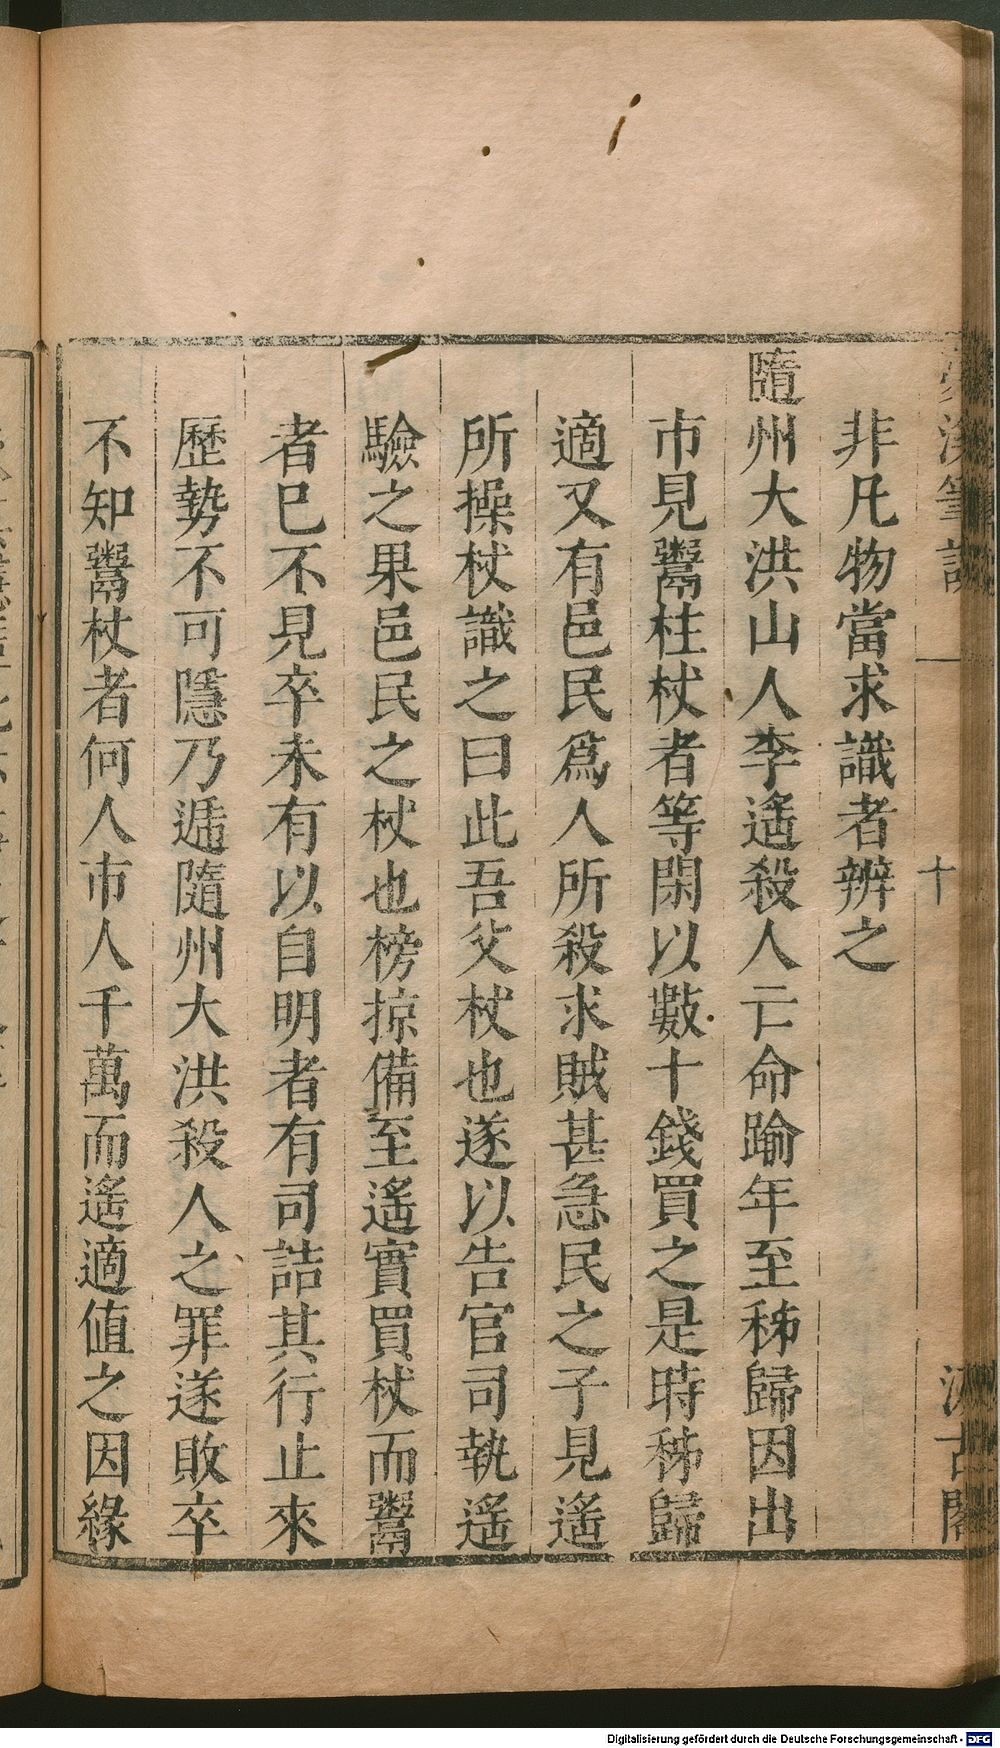 夢溪筆談
十
汲古閣
非凡物當求識者辨之
隨州大洪山人李遙殺人亡命踰年至秭歸因出
市見鬻柱杖者等閑以數十錢買之是時秭歸
適又有邑民爲人所殺求賊甚急民之子見遙
所操杖識之曰此吾父杖也遂以告官司執遙
驗之果邑民之杖也榜掠備至遙實買杖而鬻
者巳不見卒未有以自明者有司詰其行止來
歷勢不可隱乃遞隨州大洪殺人之罪遂敗卒
不知鬻杖者何人市人千萬而遙適值之因緣
Digitalisierung gefördert durch die Deutsche Forschungsgemeinschaft - DFG